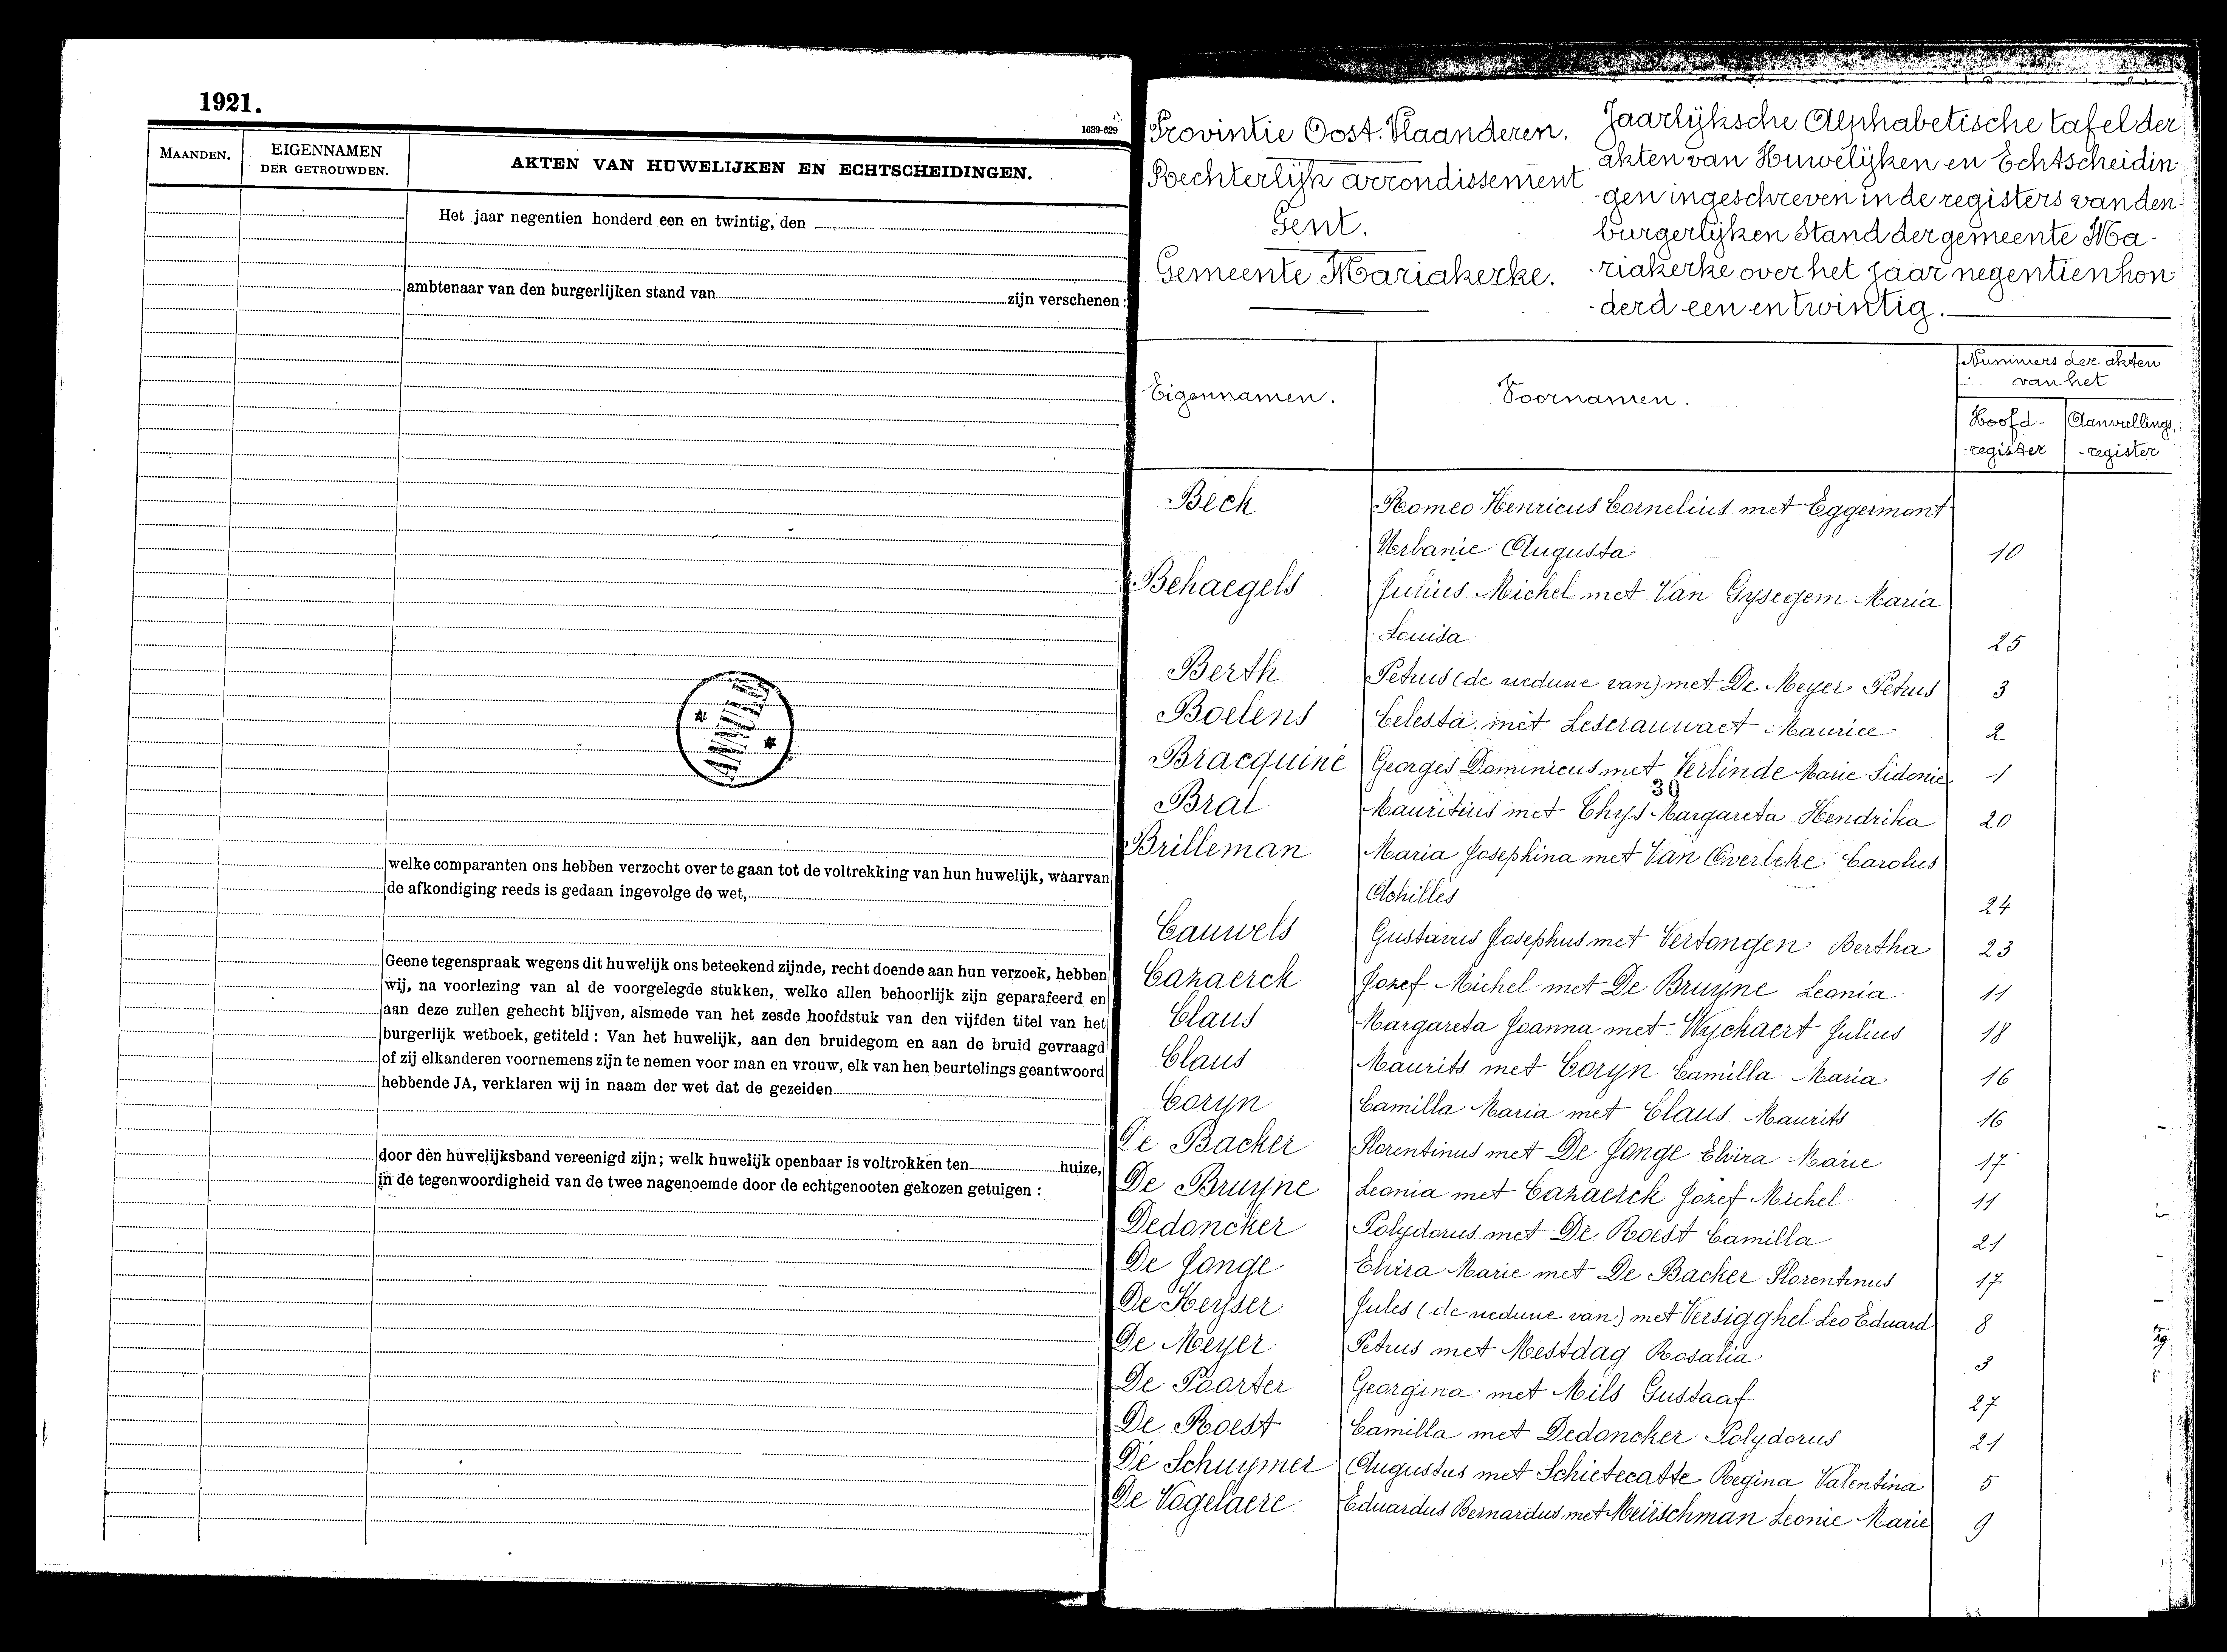 1921.
1639-629
MAANDEN.
EIGENNAMEN
DER GETROUWDEN.
AKTEN VAN HUWELIJKEN EN ECHTSCHEIDINGEN.
Het jaar negentien honderd een en twintig, den
ambtenaar van den burgerlijken stand van zijn verschenen:
ANNULÉ
welke comparanten ons hebben verzocht over te gaan tot de voltrekking van hun huwelijk, waarvan
de afkondiging reeds is gedaan ingevolge de wet,
Geene tegenspraak wegens dit huwelijk ons beteekend zijnde, recht doende aan hun verzoek, hebben
wij, na voorlezing van al de voorgelegde stukken, welke allen behoorlijk zijn geparafeerd en
aan deze zullen gehecht blijven, alsmede van het zesde hoofdstuk van den vijfden titel van het
burgerlijk wetboek, getiteld : Van het huwelijk, aan den bruidegom en aan de bruid gevraagd
of zij elkanderen voornemens zijn te nemen voor man en vrouw, elk van hen beurtelings geantwoord
hebbende JA, verklaren wij in naam der wet dat de gezeiden
door den huwelijksband vereenigd zijn; welk huwelijk openbaar is voltrokken ten huize,
in de tegenwoordigheid van de twee nagenoemde door de echtgenooten gekozen getuigen :
Provintie Oost-Vlaanderen.
Rechterlijk arrondissement
Gent.
Gemeente Mariakerke.
Jaarlijksche Alphabetische tafel der
akten van Huwelijken en Echtscheidin
-gen ingeschreven in de registers van den
burgerlijken Stand der gemeente Ma-
-riakerke over het jaar negentienhon
-derd een en twintig.
Eigennamen.
Voornamen.
Nummers der akten
van het
Hoofd-
-register
Aanvullings
-register
Beck Romeo Henricus Cornelius met Eggermont
Urbanie Augusta 10
Behaegels Julius Michel met Van Gysegem Maria
Louisa 25
Berth Petrus (de weduwe van) met De Meyer Petrus 3
Boelens Celesta met Leserauwaet Maurice 2
Bracquiné Georges Dominicus met Verlinde Marie Sidonie 1
39
Bral Mauritius met Thys Margareta Hendrika 20
Brilleman Maria Josephina met Van Overbeke Carolus
Achilles 24
Cauwels Gustavus Josephus met Vertongen Bertha 23
Cazaerck Jozef Michel met De Bruyne Leonia 11
Claus Margareta Joanna met Wychaert Julius 18
Claus Maurits met Coryn Camilla Maria 16
Coryn Camilla Maria met Claus Maurits 16
De Backer Florentinus met De Jonge Elvira Marie 17
De Bruyne Leonia met Cazaerck Jozef Michel 11
Dedoncker Polydorus met De Roest Camilla 21
De Jonge Elvira Marie met De Backer Florentinus 17
De Keyser Jules (de weduwe van) met Versigghel Leo Eduard 8
De Meyer Petrus met Mestdag Rosalia 3
De Poorter Georgina met Mils Gustaaf 27
De Roest Camilla met Dedoncker Polydorus 21
De Schuymer Augustus met Schietecatte Regina Valentina 5
De Vogelaere Eduardus Bernardus met Meirschman Leonie Marie 9